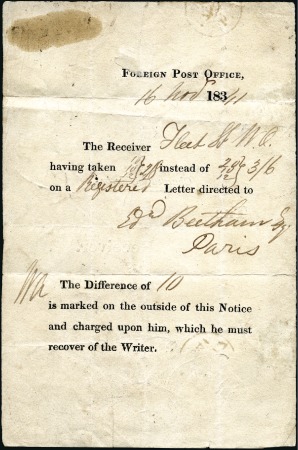 FOREIGN POST OFFICE,
16 Novr 1841
The Receiver Fleet St W.O.
having taken instead of 3/6
on a Registered Letter directed to
Edd Beetham Esq
Paris
The Difference of 10
is marked on the outside of this Notice
and charged upon him, which he must
recover of the Writer.